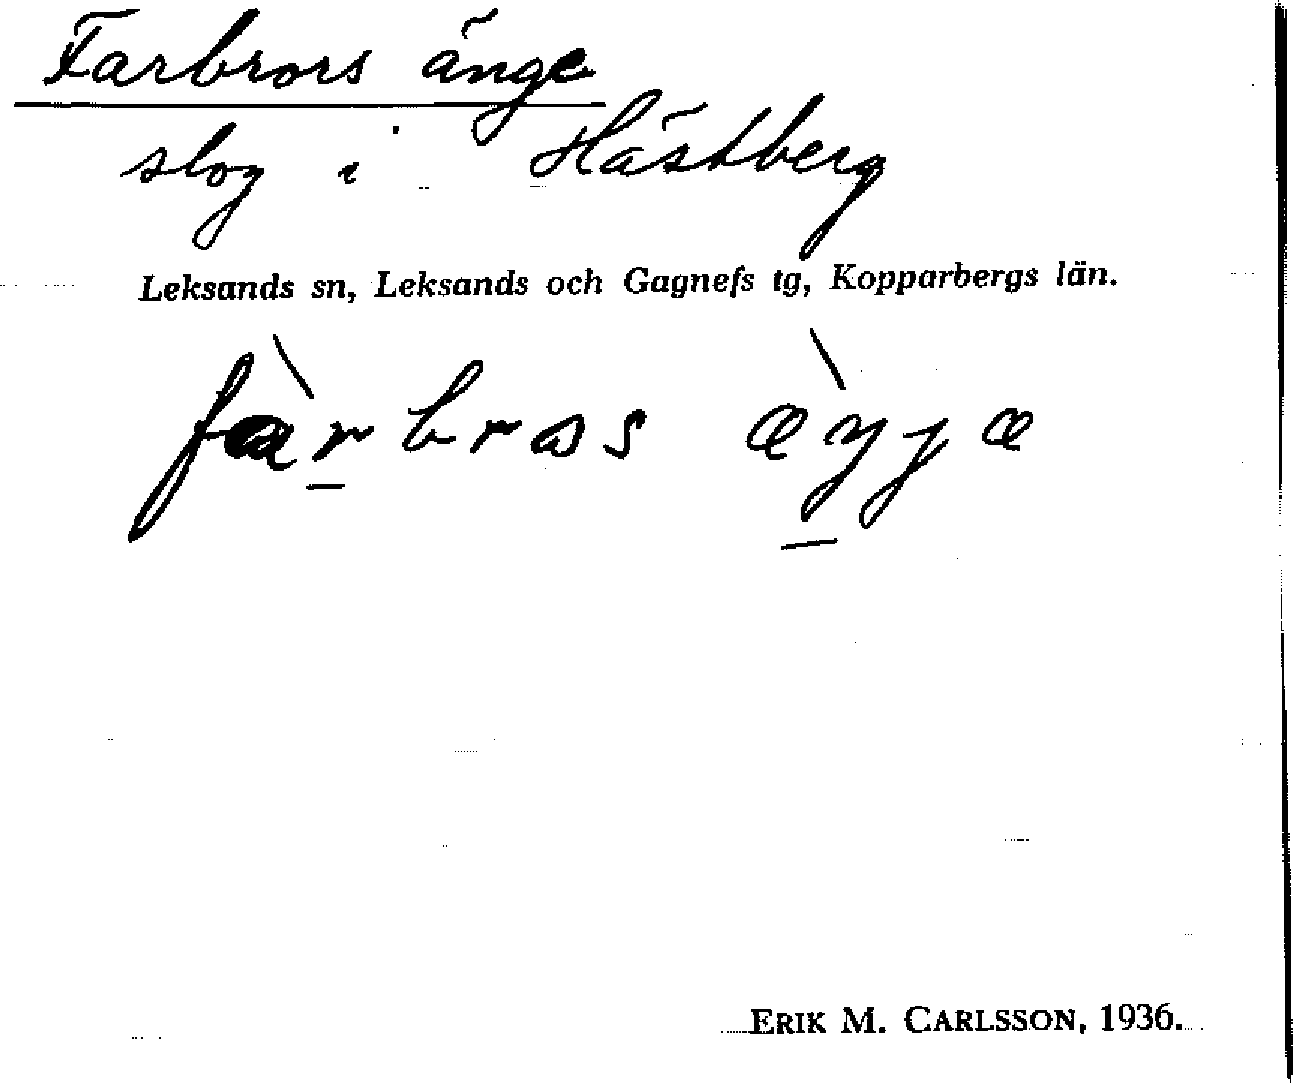 Farbrors änge
slog i Hästberg
Leksands sn, Leksands och Gagnefs tg, Kopparbergs län.
ERIK M. CARLSSON, 1936.